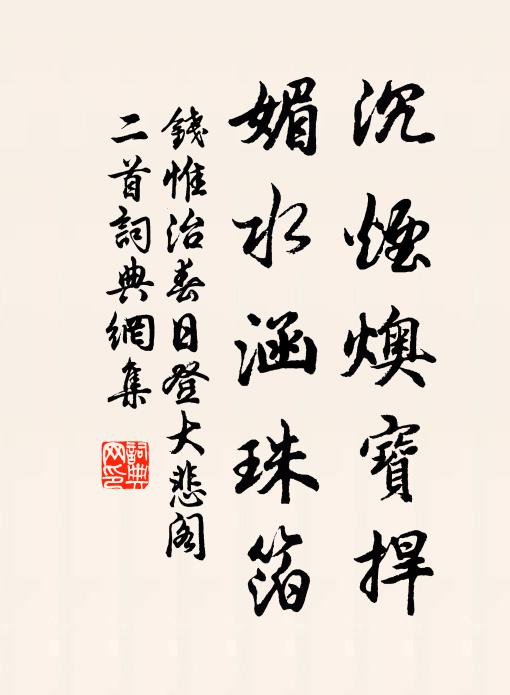 沉煙燠寶捍
媚水涵珠箔
錢惟治春日登大悲阁
二首詞典網集
詞典网印